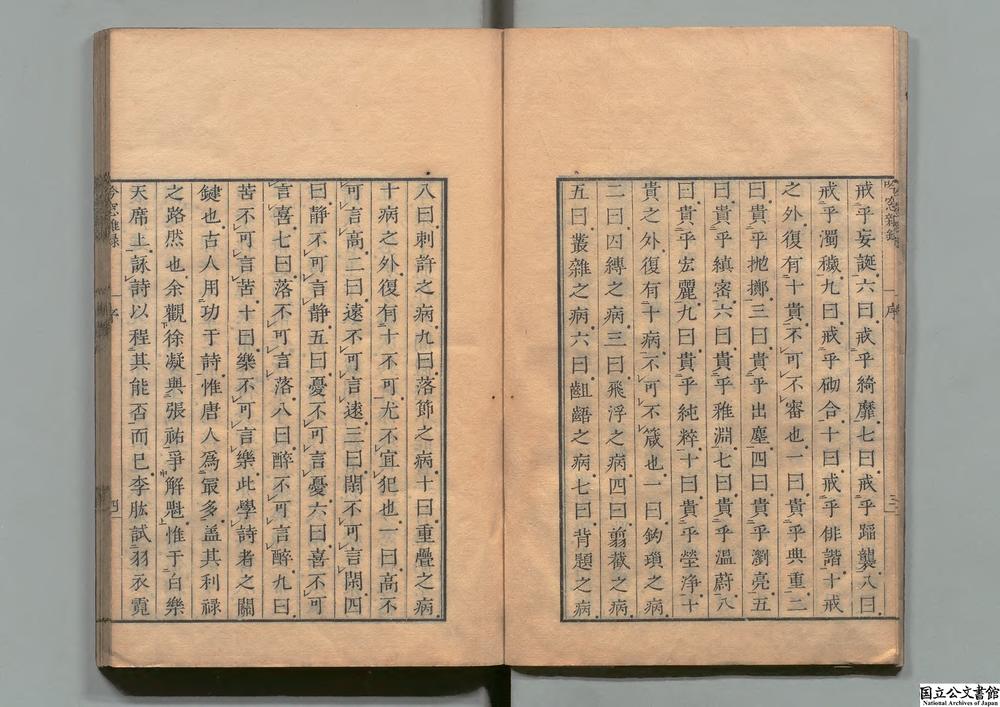 戒乎妄誕六曰戒乎綺靡七曰戒乎蹈襲八曰
戒乎濁穢九曰戒乎砌合十曰戒乎俳諧十戒
之外復有十貴不可不審也一曰貴乎典重二
曰貴乎拋擲三曰貴乎出塵四曰貴乎瀏亮五
曰貴乎縝密六曰貴乎雅淵七曰貴乎溫蔚八
曰貴乎宏麗九曰貴乎純粹十曰貴乎瑩浄十
貴之外復有十病不可不箴也一曰鈎瑣之病
二曰四縛之病三曰飛浮之病四曰剪截之病
五曰叢雜之病六曰齟齬之病七曰背題之病
八曰刺訐之病九曰落節之病十曰重疊之病
十病之外復有十不可尤不宜犯也一曰高不
可言高二曰遠不可言遠三曰閑不可言閑四
曰静不可言静五曰憂不可言憂六曰喜不可
言喜七曰落不可言落八曰醉不可言醉九曰
苦不可言苦十曰樂不可言樂此學詩者之關
鍵也古人用功于詩惟唐人爲最多盖其利祿
之路然也余觀徐凝與張祐爭解魁惟于白樂
天席上詠詩以程其能否而已李肱試羽衣霓
吟窓雜錄
序
三
吟窓雜錄
序
四
国立公文書館
National Archives of Japan